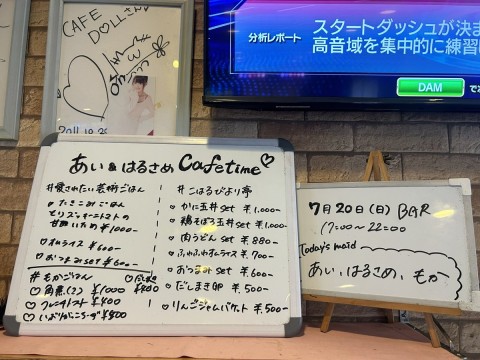 CAFE
DOLLさん
2011.10.29
スタートダッシュが決ま
分析レポート
高音域を集中的に練習
DAM
あい&はるさめ Cafetime♡
#愛されたい芸術ごはん
○たきこみごはん
とりズッキーニトマトの
甘酢いため ¥1000-
○オムライス ¥600-
○おつまみset ¥600-
#もかごはん
♡角煮(2) ¥1000
¥800
♡フレンチトースト ¥400
#こはるびより亭
♡かに玉丼set ¥1,000-
♡鶏そぼろ玉丼set ¥1,000-
♡肉うどん set ¥880-
♡ふわふわオムライス ¥700-
♡おつまみ set ¥600-
♡だしまき卵 ¥500-
♡りんごジャムバケット ¥500-
7月20日(日) BAR
17:00〜22:00
Today's maid
あい、はるさめ、もか